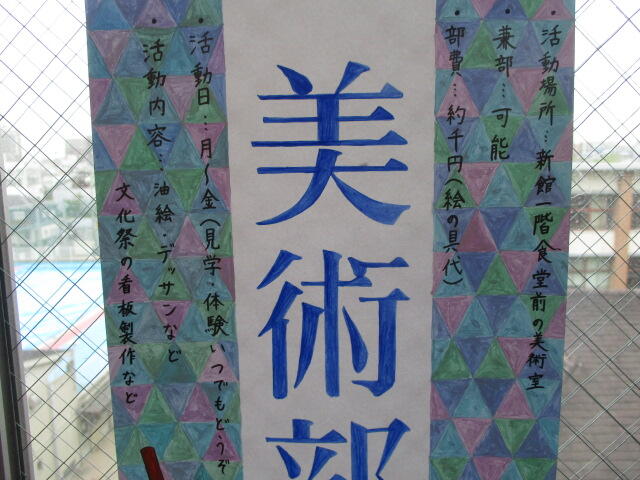 ・活動場所…新館一階食堂前の美術室
・兼部…可能
・部費…約千円(絵の具代)
美術部
・活動日…月〜金(見学・体験いつでもどうぞ
・活動内容…油絵・デッサンなど
文化祭の看板製作など